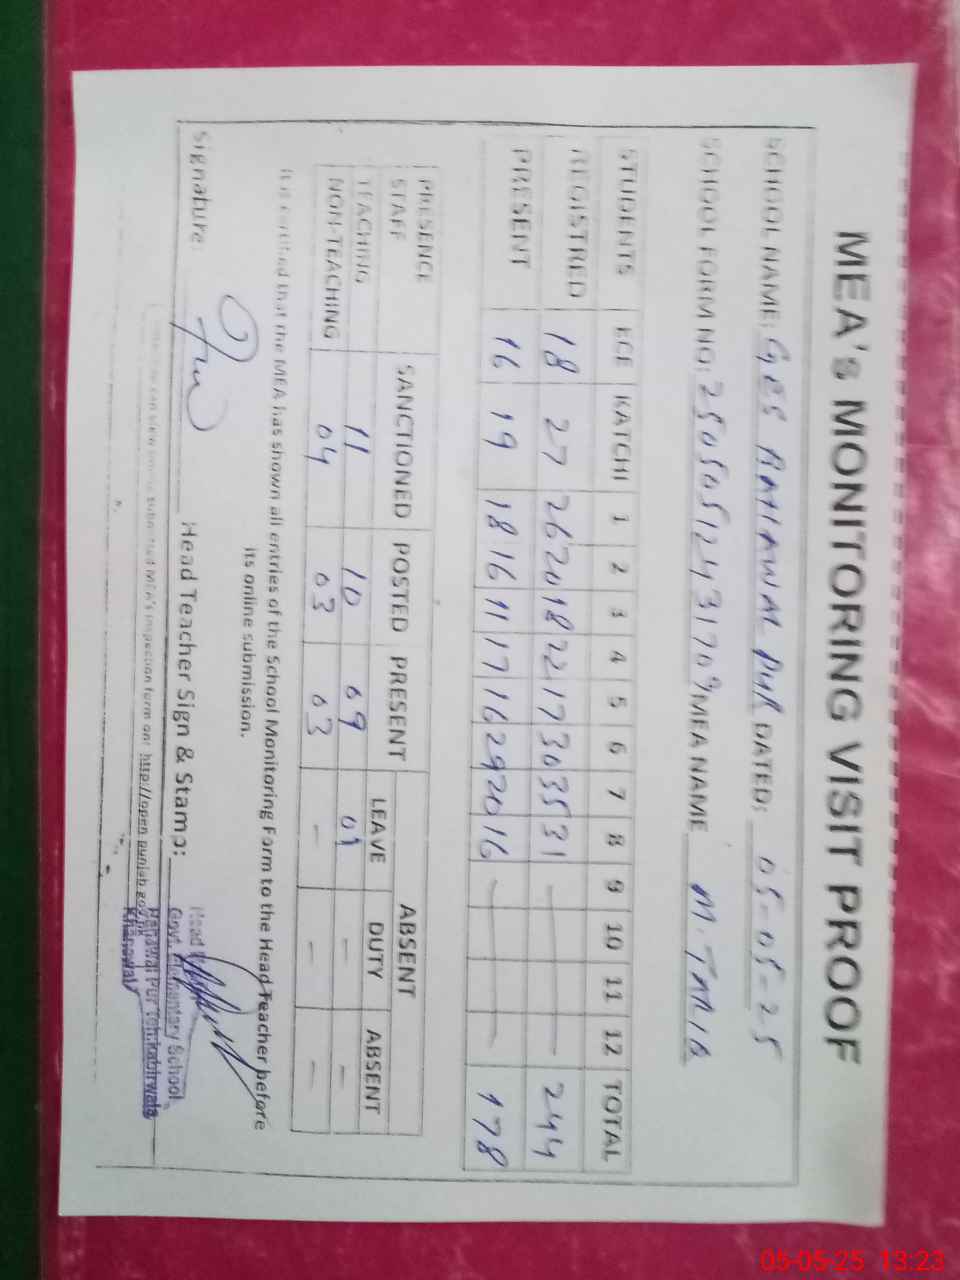 MEA's MONITORING VISIT PROOF
SCHOOL NAME: GES RAHAWAL PUR DATED: 05-05-25
SCHOOL FORM NO: 25050512431709 MEA NAME M. TAHIR
STUDENTS ECE KATCHI 1 2 3 4 5 6 7 8 9 10 11 12 TOTAL
REGISTRED 18 27 26 20 18 22 17 30 35 31 — — 244
PRESENT 16 19 18 16 11 17 16 29 20 16 — — 178
PRESENCE SANCTIONED POSTED PRESENT ABSENT
STAFF LEAVE DUTY ABSENT
TEACHING 11 10 09 01 — —
NON-TEACHING 04 03 03 — — —
It is certified that the MEA has shown all entries of the School Monitoring Form to the Head Teacher before
its online submission.
Signature: Head Teacher Sign & Stamp:
Head
Govt. Elementary School
Pur Teh: Kabirwala
Khanewal
can view submitted MEA's inspection form on: http://open.punjab.gov.pk
05-05-25 13:23